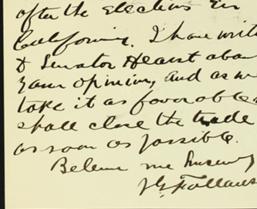 after the elections in
California. I have writ
to Senator Hearst abou
your opinion, and as w
take it as favorable
shall close the trade
as soon as possible.
Believe me